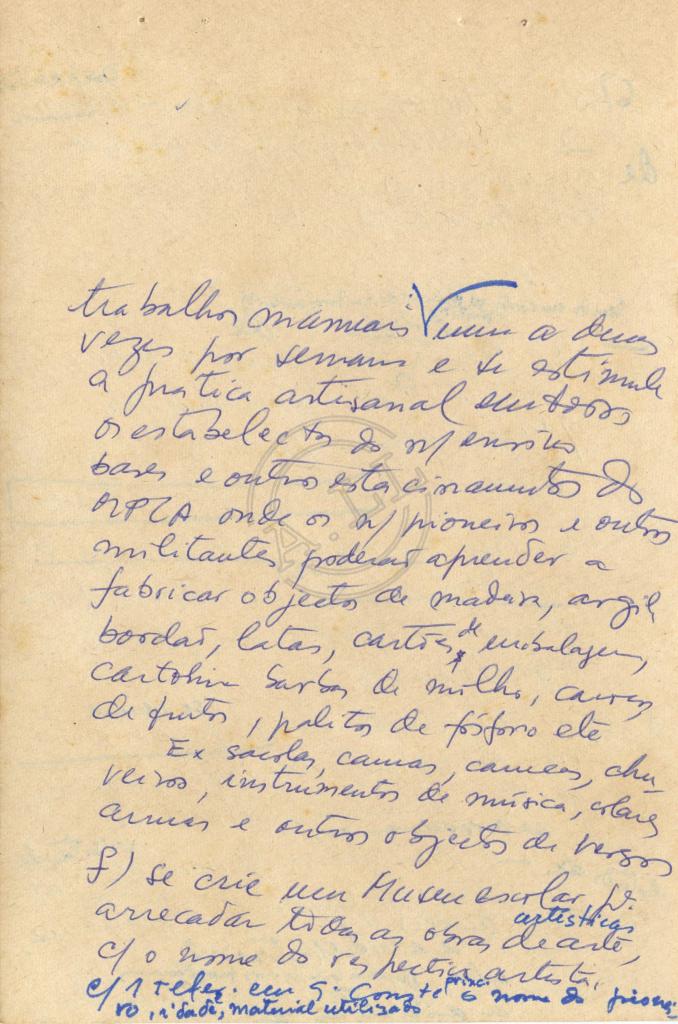 trabalhos manuais uma a duas
vezes por semana e se estimule
a pratica artisanal em todos
os estabelects do n/ ensino
bases e outros estacionamentos do
MPLA onde os n/ pioneiros e outros
militantes poderão aprender a
fabricar objectos de madeira, argila
bordão, latas, cartões de embalagem,
cartolina barbas de milho, caroços
de frutos, palitos de fósforo etc
Ex sacolas, camas, canecas, chu
veiros, instrumentos de música, colares
armas e outros objectos de
f) se crie um Museu escolar, p.
arrecadar todas as obras de arte,
artísticas
c/ o nome do respectivo artista,
c/ 1 refer. em q. conste o nome do pionei
ro, idade, material utilizado
A.L.